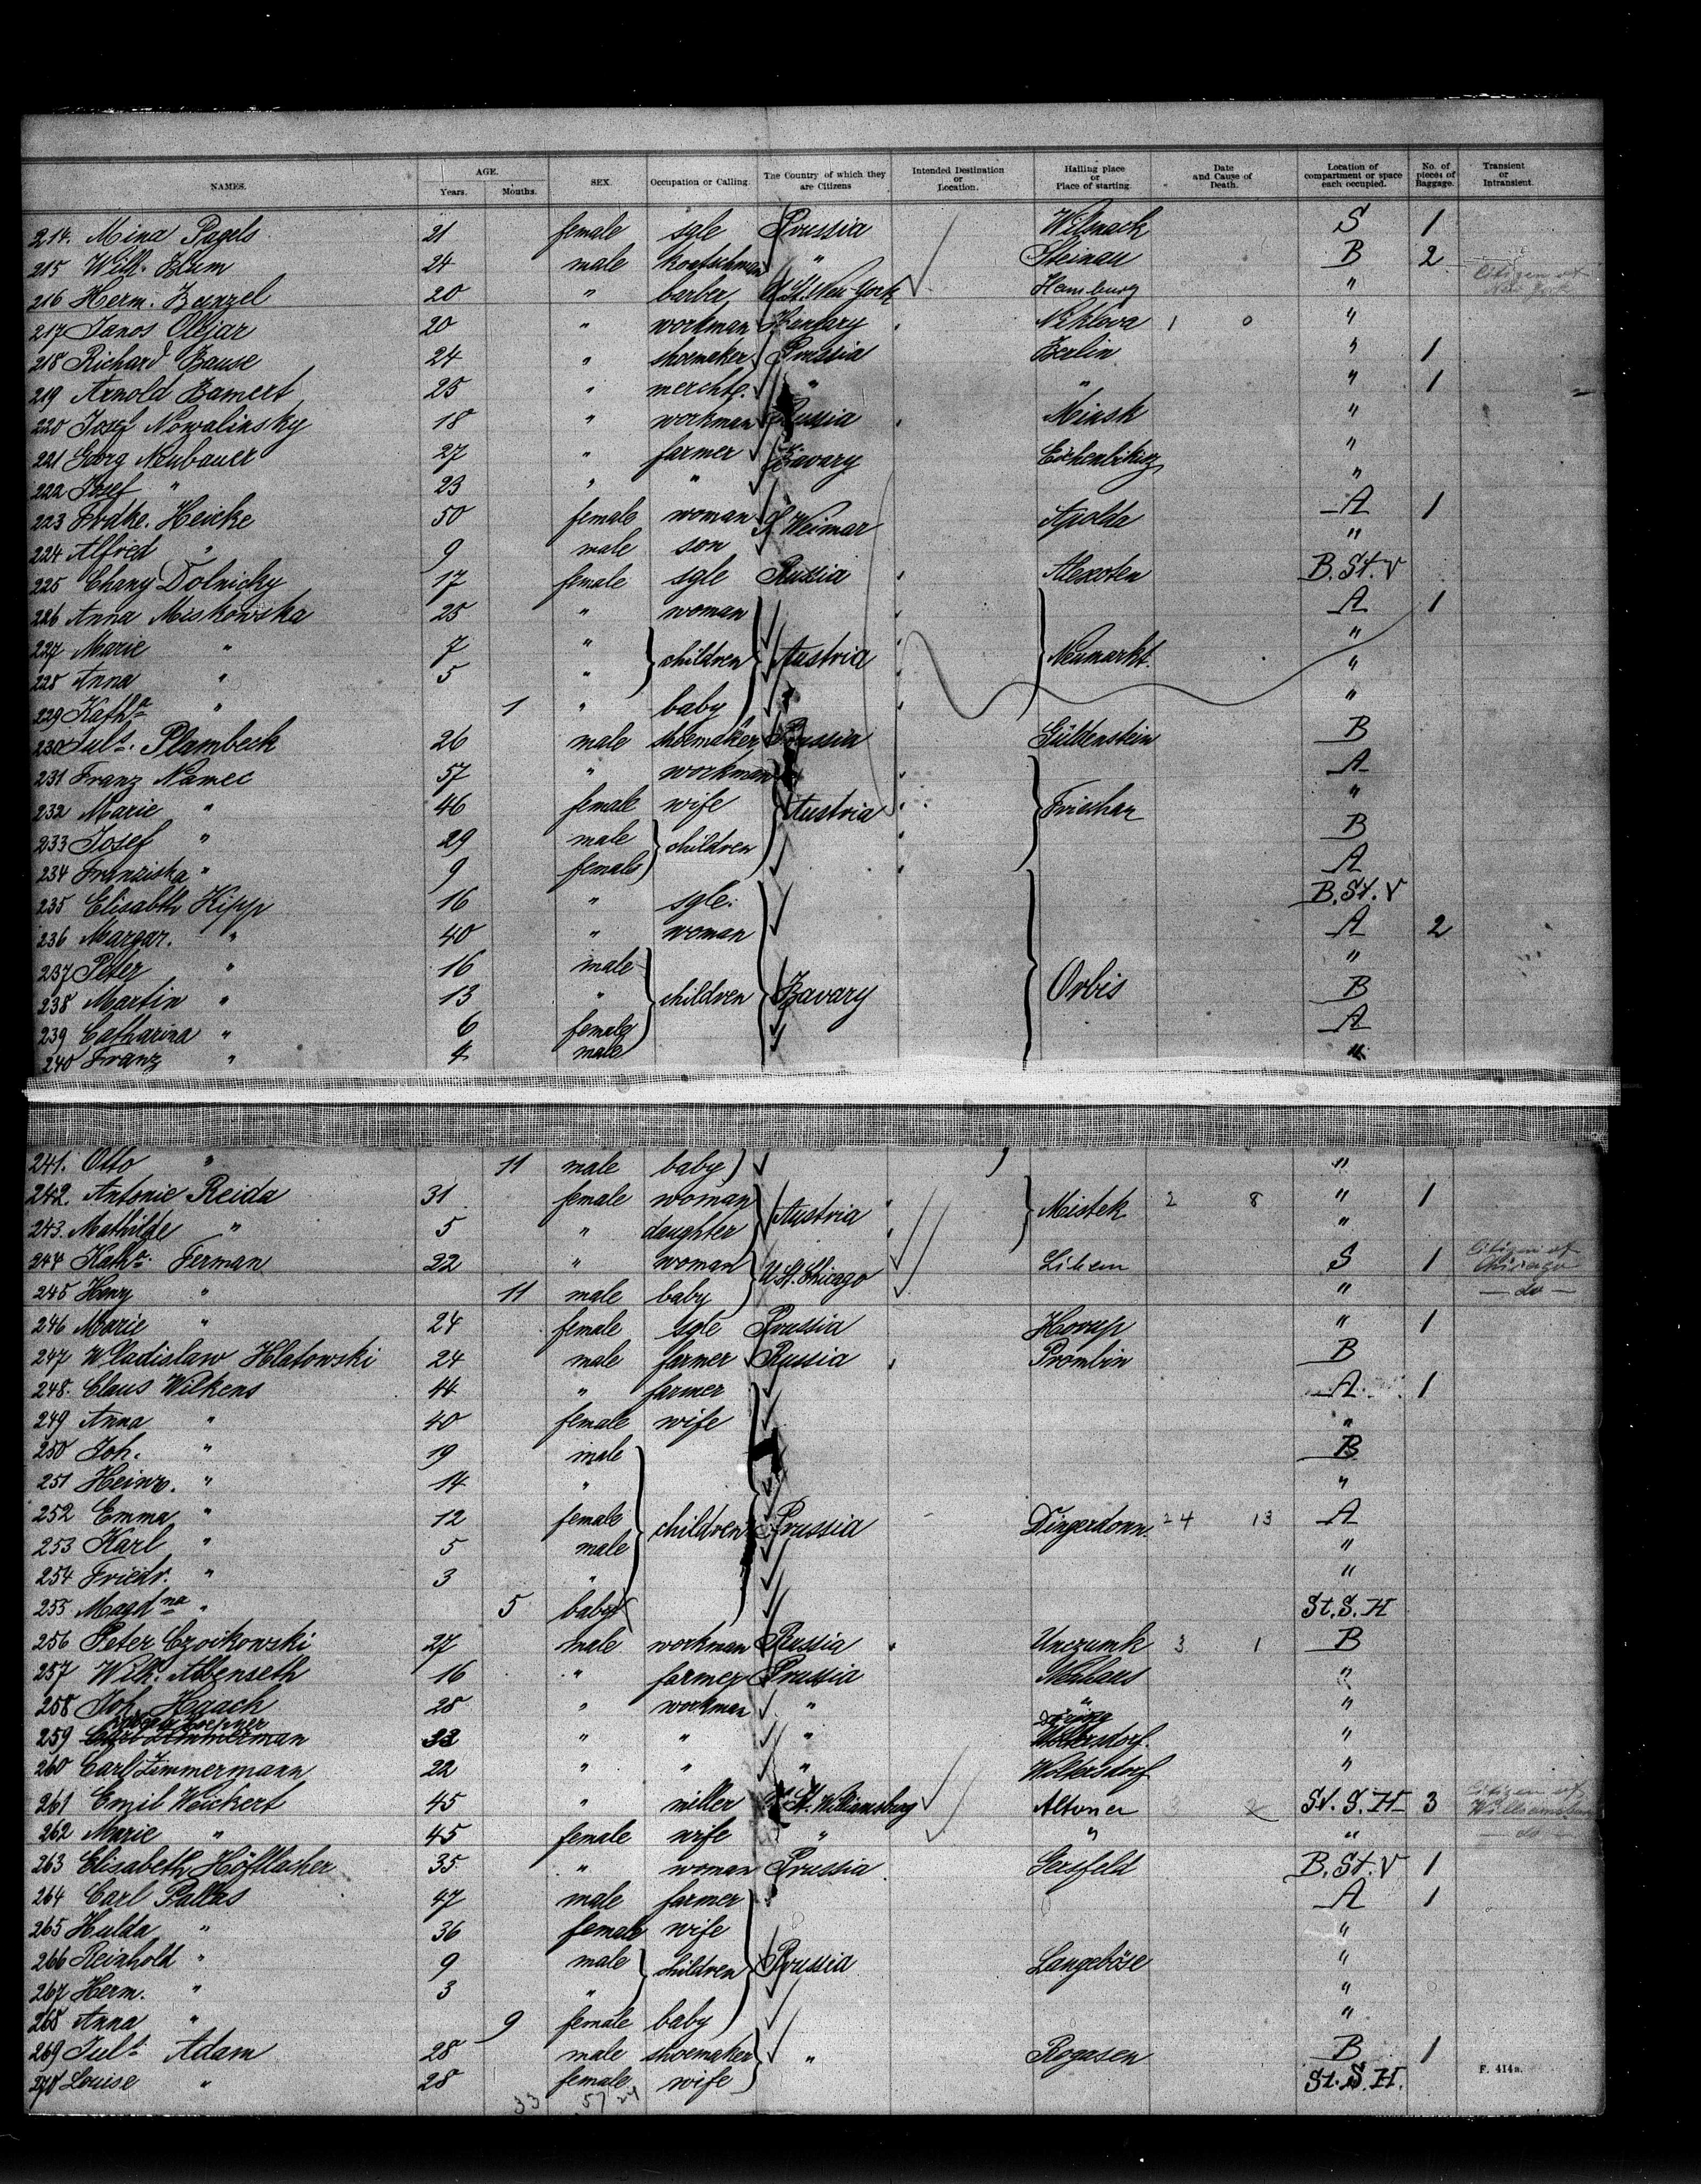 NAMES. AGE. Years. Months. SEX. Occupation or Calling. The Country of which they are Citizens Intended Destination or Location. Hailing place or Place of starting. Date and Cause of Death. Location of compartment or space each occupied. No. of pieces of Baggage. Transient or Intransient.
214. Mina Pagels 21 female sgle Prussia Wilsnack S 1
215 Wilh. Blum 24 male " Steinau B 2
216 Herm. Bunzel 20 " barber U. St. New-York Hamburg " Citizen of New York
217 Janos Olejar 20 " workman Hungary Niklova 1 0 "
218 Richard Bause 24 " shoemaker Prussia Berlin " 1
219 Arnold Bamert 25 " merchte. " " " 1
220 Josef Nowalinsky 18 " workman Russia Minsk "
221 Georg Neubauer 27 " farmer Bavary "
222 Josef " 23 " " "
223 Fredke. Heicke 50 female woman S. Weimar Apolda A 1
224 Alfred " 9 male son "
225 Chany Dolnicky 17 female sgle Russia Alexoten B. St. V
226 Anna Miskowska 25 " woman A 1
227 Marie " 7 " children Austria Neumarkt. "
228 Anna " 5 " "
229 Katha " 1 " baby "
230 Juls. Plambeck 26 male shoemaker Prussia Güldenstein B
231 Franz Namec 57 " workman A
232 Marie " 46 female wife Austria "
233 Josef " 29 male children B
234 Franziska " 9 female A
235 Elisabth Kipp 16 " sgle. B. St. V
236 Margar. " 40 " woman A 2
237 Peter " 16 male "
238 Martin " 13 " children Bavary Orbis B
239 Catharina " 6 female A
240 Franz " 4 male "
241. Otto " 11 male baby "
242. Antonie Reida 31 female woman Austria Mistek 2 8 " 1
243. Mathilde " 5 " daughter "
244 Katha. Ferman 22 " woman U. St. Chicago S 1 Citizen of Chicago
245 Henry " 11 male baby " — do —
246 Marie " 24 female sgle Prussia Horup " 1
247 Wladislaw Hlatowski 24 male farmer Russia Prombin B
248. Claus Wilkens 44 " farmer A 1
249 Anna " 40 female wife "
250 Joh. " 19 male B
251 Heinr. " 14 " "
252 Emma " 12 female children Prussia Dingerdonn 24 13 A
253 Karl " 5 male "
254 Friedr. " 3 " "
255 Magdna " 5 baby St. S. H
256 Peter Czoikowski 27 male workman Russia 3 1 B
257 Wilh. Abenseth 16 " farmer Prussia "
258 Joh. Haach 28 " workman " " "
259 Carl Zimmerman 33 " " " Woltersdorf. "
260 Carl Zimmermann 22 " " " Woltersdorf "
261 Emil Weickert 45 " miller U. St. Williamsburg Altona St. S. H 3 Citizen of Williamsburg
262 Marie " 45 female wife " " " — do —
263 Elisabeth Höftlacher 35 " woman Prussia Gersfeld B. St. V 1
264 Carl Pallas 47 male farmer A 1
265 Hulda " 36 female wife "
266 Reinhold " 9 male children Prussia Langeböse "
267 Herm. " 3 " "
268 Anna " 9 female baby "
269 Juls. Adam 28 male shoemaker " Rogasen B 1
270 Louise " 28 female wife St. S. H.
33 57 24
F. 414a.